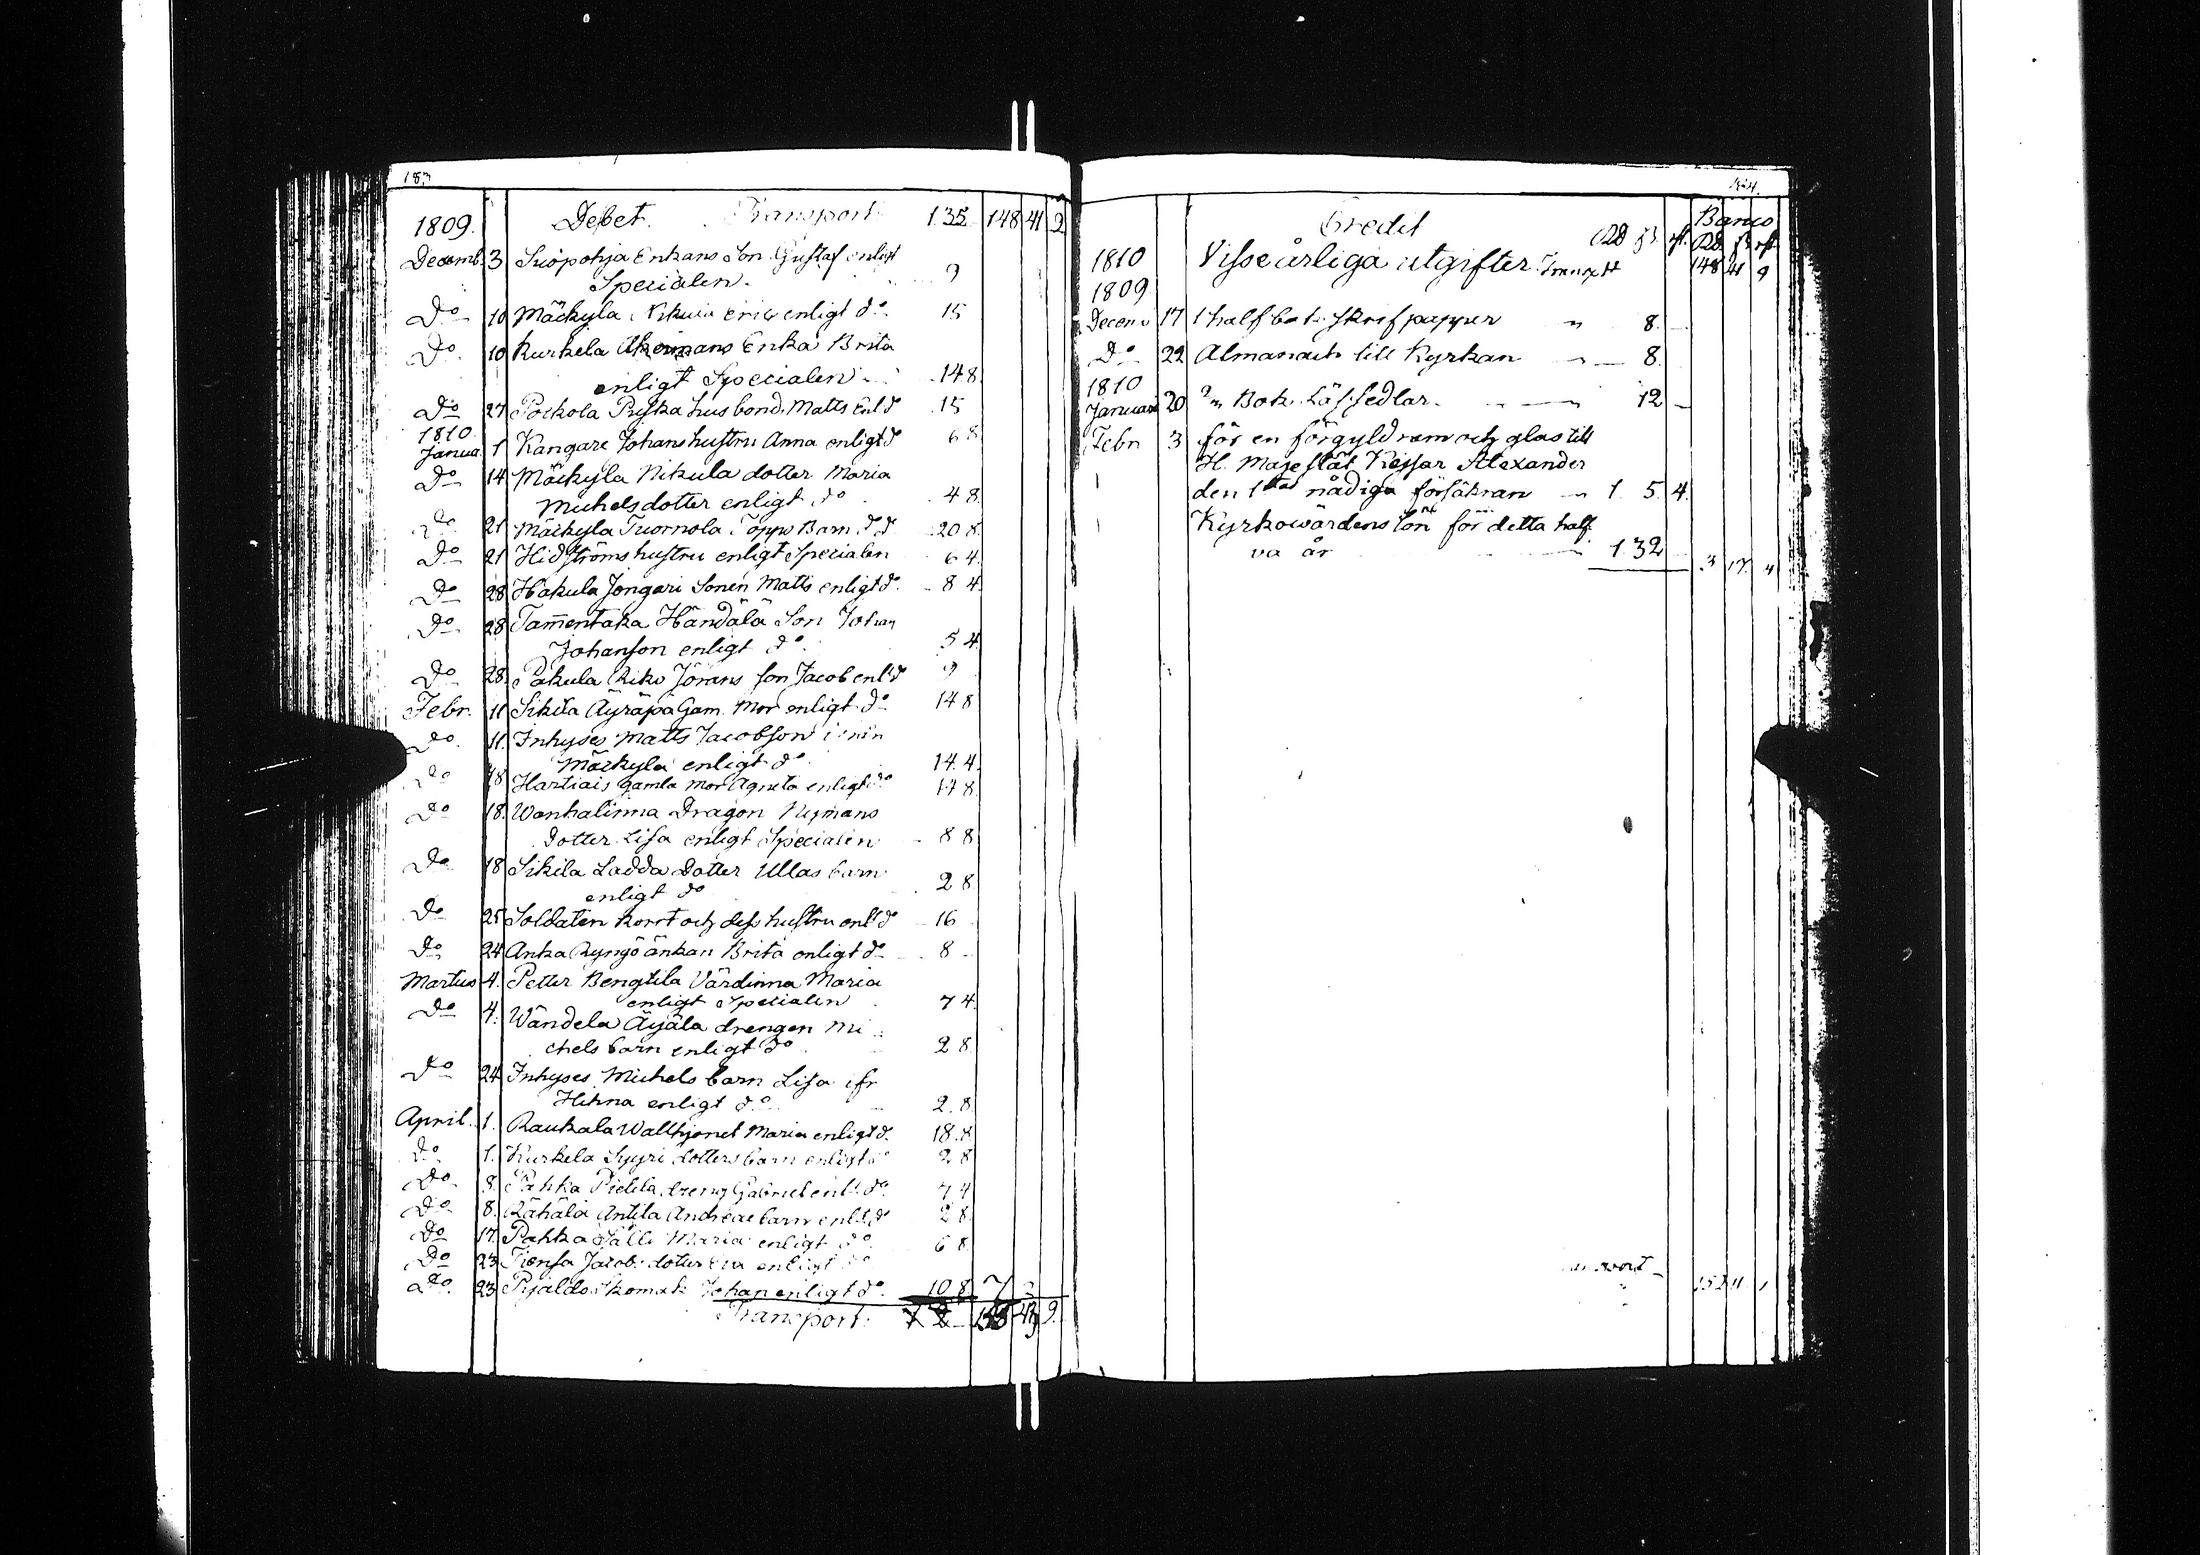 183
1809. Debet. Transport 135 148 41 9
Decemb. 3 Suopohja Enkans Son Gustaf enligt
Specialen. 9
Do 10 Mäckyla Nikula eric enligt do 15
Do. 10 Kurkela Akermans Enka Brita
enligt Specialen 14 8.
Do 27 Pockola Pryska husbond. Matts enl do 15
1810.
Janua. 1 Kangare Johans hustru Anna enligt do 6 8
Do 14 Mäckyla Nikula dotter Maria
Michelsdotter enligt do 4 8.
Do 21 Mäckyla Tuornola Topps Barn do do 20 8.
Do 21 Hidströms hustru enligt Specialen 6 4.
Do 28 Hakula Jongari Sonen Matts enligt do. 8 4.
Do. 28 Tam̄entaka Händälä Son Johan
Johanson enligt do. 5 4
Do 28. Pakula Riko Jörans son Jacob enl do 9
Febr. 11 Sikila Äyräpä Gam. Mor enligt do 14 8
Do. 11. Inhyses Matts Jacobson i
Mäckyla enligt do 14. 4.
Do 18 Hartiais gamla mor Agneta enligt do 14 8.
Do 18. Wanhalinna Dragon Nymans
dotter Lisa enligt Specialen 8 8
Do. 18 Sikila Ladda Dotter Ullas barn
enligt do 2 8.
Do 25 Soldaten Korrt och dess hustru enl do 16
Do 24 Anka Ryngö änkan Brita enligt do 8
Martus 4. Petter Bengtila Värdinna Maria
enligt Specialen 7 4.
Do 4. Wändela Äyälä drengen Mi
chels barn enligt do 2 8.
Do 24 Inhyses Michels barn Lisa ifr
Hihna enligt do 2. 8.
April. 1. Raukala Wallhjonet Maria enligt do. 18. 8
Do 1. Kurkela Syyri dotters barn enligt do 2 8
Do. 8. Pahka Pietila dreng Gabriel enl. do. 7 4
Do 8. Rähälä Antila Andreae barn enl. do 2 8.
Do 17. Pahka Sälli Maria enligt do. 6 8.
Do 23 Jacobs dotter enligt do
Do. 23 Skomak Johan enligt do. 10 8
Transport. 9.
184.
Credit Banco
RD ß rst. RD ß rst
1810 Visse årliga utgifter. Transpt 148 41 9
1809
Decem 17 1 half bok skrifpapper " 8.
Do 22 Almanach till Kyrkan 8.
1810
Januari 20 2 Bok Läs sedlar. 12
Febr 3 för en förgyld ram och glas till
H. Majestät Kejsar Alexander
den 1stas nådiga försäkran 1. 5. 4.
Kyrkowärdens lön för detta half
va år 1 32 3 17. 4
152 11 1